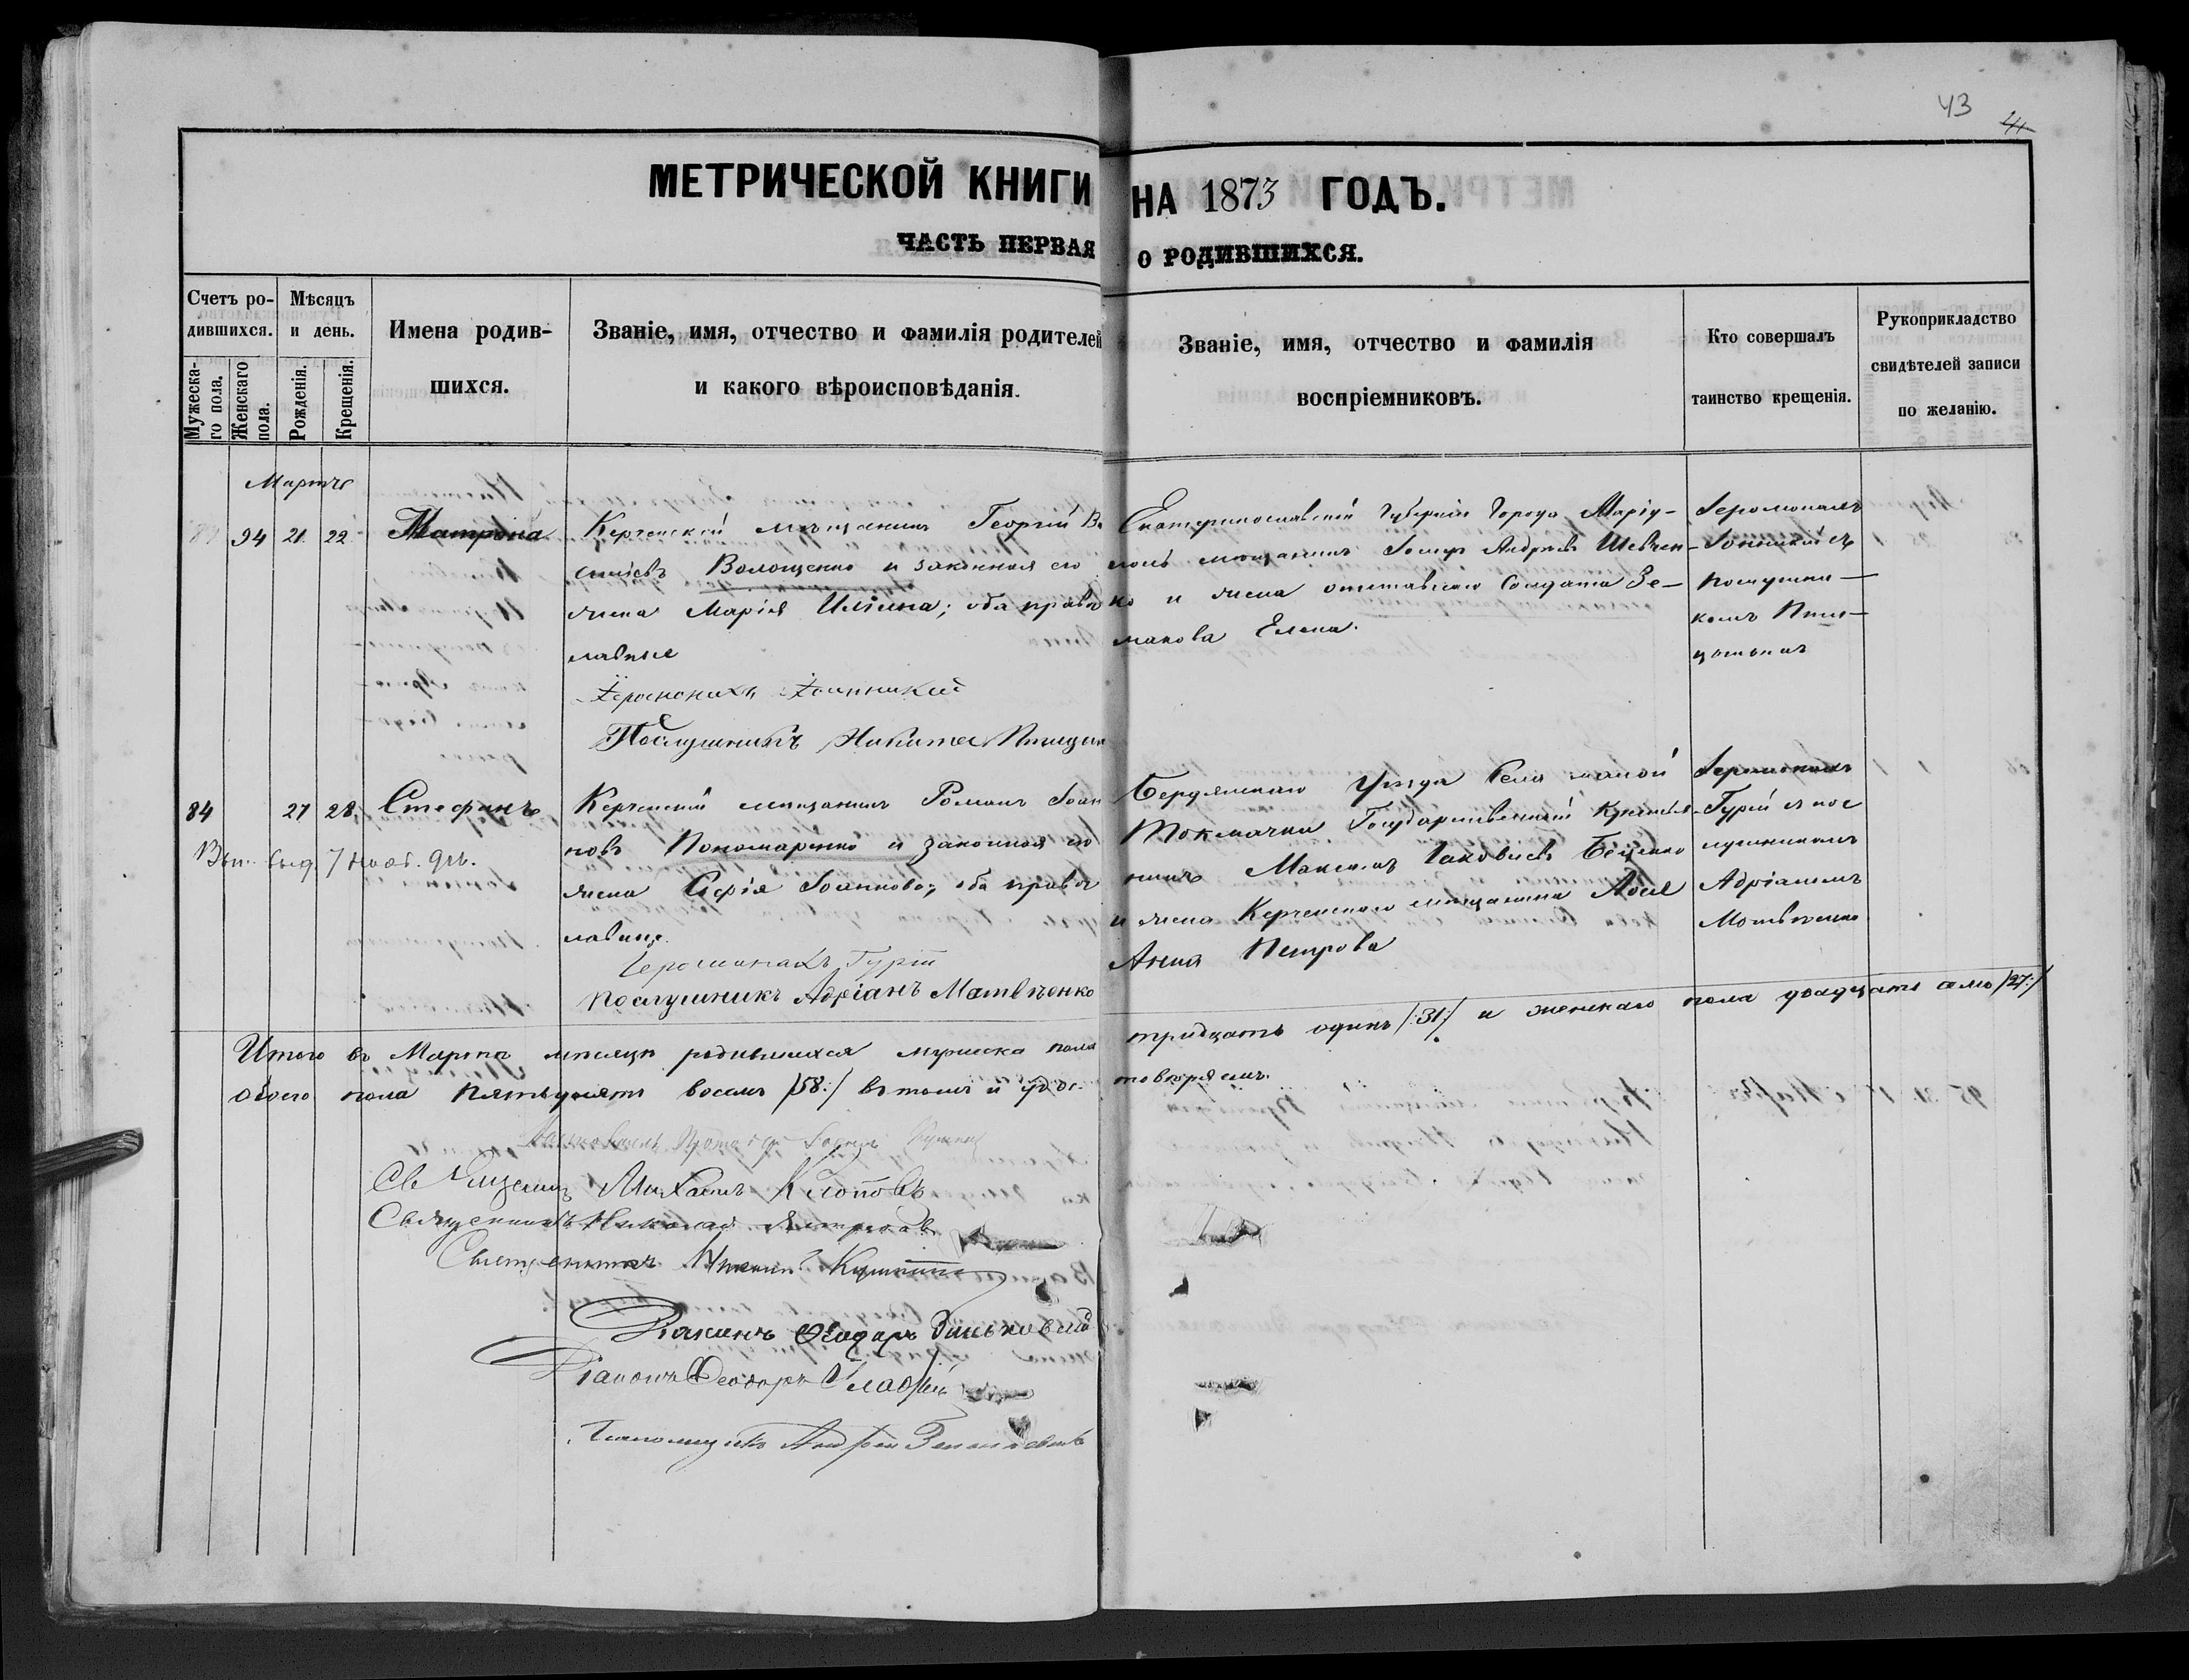 43
41
МЕТРИЧЕСКОЙ КНИГИ НА 1873 ГОДЪ.
ЧАСТЬ ПЕРВАЯ О РОДИВШИХСЯ.
Счетъ родившихся.
Мужескаго пола.
Женскаго пола.
Мѣсяцъ и день.
Рожденія.
Крещенія.
Имена родив-
шихся.
Званіе, имя, отчество и фамилія родителей
и какого вѣроисповѣданія.
Званіе, имя, отчество и фамилія
воспріемниковъ.
Кто совершалъ
таинство крещенія.
Рукоприкладство
свидѣтелей записи
по желанію.
Мартъ
94 21 22 Матрона
Керченскій мѣщанинъ Георгій Ва
сильевъ Волощенко и законная его
жена Марія Иліина; оба право
славные
Іеромонахъ Іоанникій
Послушникъ Никита Птицын
Екатеринославской Губерніи Города Маріу-
поль мѣщанинъ Іосифъ Андреевъ Шевчен-
ко и жена отставнаго Солдата Зе-
макова Елена.
Іеромонахъ
Іоанникій съ
послушни-
комъ Пти-
цынымъ
84 27 28 Стефанъ
Вып. выд. 7 нояб. 91г.
Керченскій мѣщанинъ Романъ Іоан
новъ Пономаренко и законная его
жена Софія Іоаннова; оба право
славные.
Іеромонахъ Гурій
Послушникъ Адріанъ Матвѣенко
Бердянскаго Уѣзда Села малой
Токмачки Государственный Крестья-
нинъ Максимъ Іаковлевъ Беценко
и жена Керченскаго мѣщанина
Анна Петрова
Іеромонахъ
Гурій съ пос
лушникомъ
Адріаномъ
Матвѣенко
Итого въ Мартѣ мѣсяцѣ родившихся мужеска пола тридцать одинъ /:31:/ и женскаго пола двадцать семь /27:/
обоего пола пятьдесятъ восемь /58:/ въ томъ и удос- товѣряемъ.
Священникъ Михаилъ Клоповъ
Священникъ Николай
Священникъ
Діаконъ Ѳеодоръ
Діаконъ Ѳеодоръ
Псаломщикъ Андрей